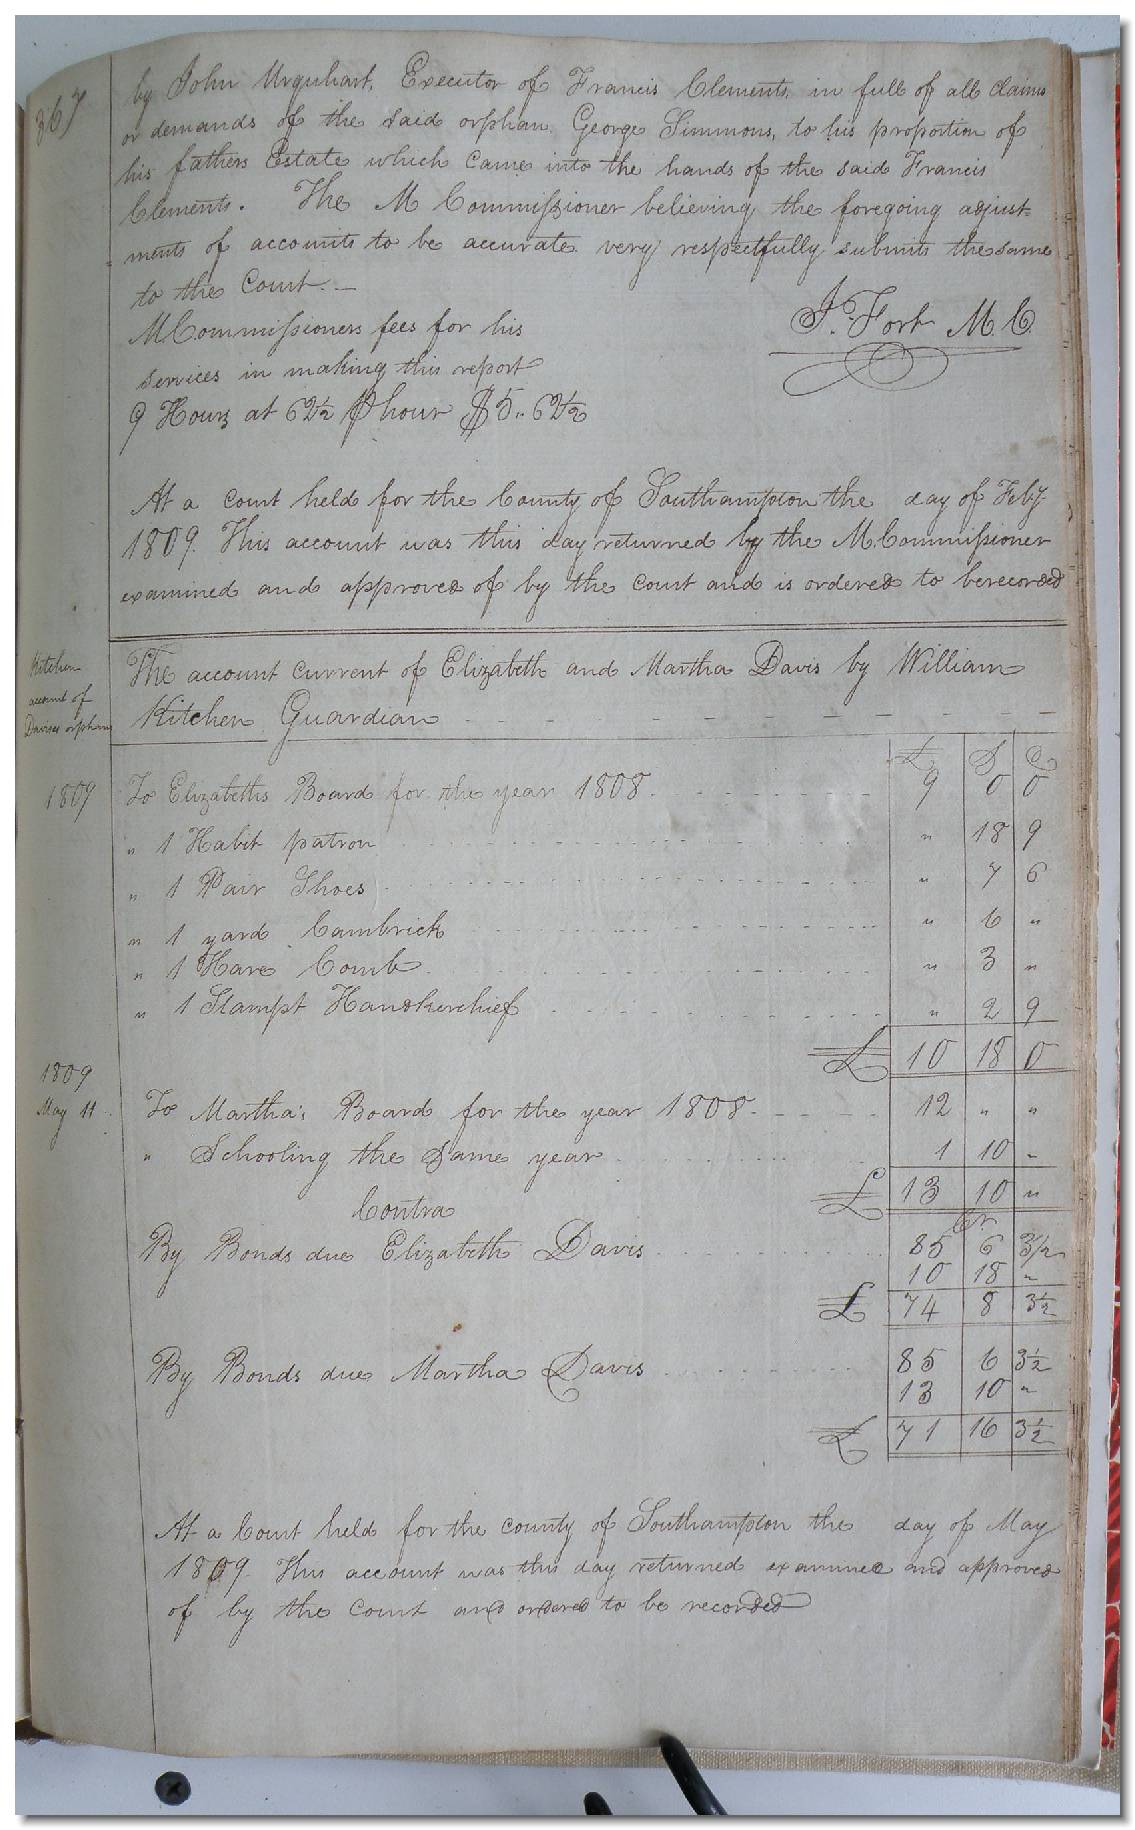 367
by John Urquhart, Executor of Francis Clements, in full of all claims
or demands of the said orphan, George Simmons, to his proportion of
his fathers Estate which came into the hands of the said Francis
Clements. The M Commissioner believing the foregoing adjust-
ments of accounts to be accurate very respectfully submits the same
to the Court.
J. Fort M. C.
M Commissioners fees for his
services in making this report
9 Hours at 62½ ⅌ hour $5.. 62½
At a court held for the County of Southampton the day of Feby
1809. This account was this day returned by the M. Commissioner
examined and approved of by the court and is ordered to be recorded
Kitchen
account of
Davises orphans
The account current of Elizabeth and Martha Davis by William
Kitchen Guardian
£ S D
1809 To Elizabeths Board for the year 1808. 9 0 0
" 1 Habit patron " 18 9
" 1 Pair Shoes " 7 6
" 1 yard Cambrick " 6 "
" 1 Hare Comb " 3 "
" 1 Stampt Handkerchief " 2 9
£ 10 18 0
1809
May 11 To Martha's Board for the year 1808 12 " "
" Schooling the Same year 1 10 "
£ 13 10 "
Contra Cr
By Bonds due Elizabeth Davis 85 6 3½
10 18 "
£ 74 8 3½
By Bonds due Martha Davis 85 6 3½
13 10 "
£ 71 16 3½
At a Court held for the county of Southampton the day of May
1809. This account was this day returned examined and approved
of by the Court and ordered to be recorded